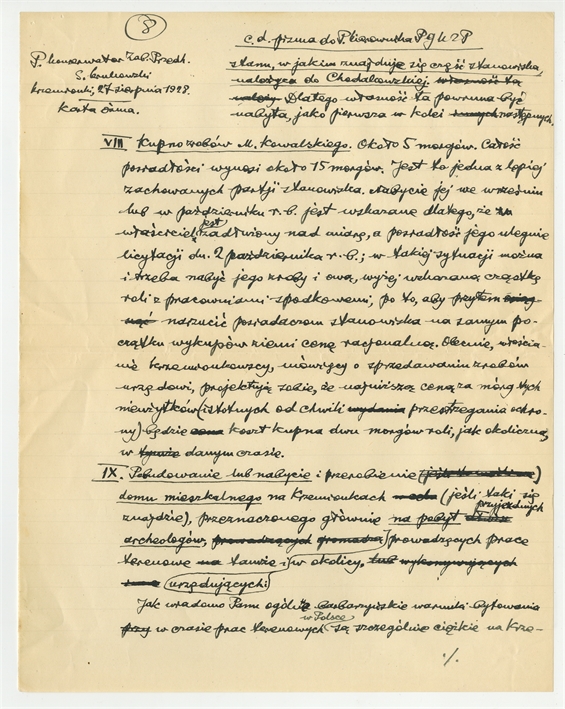 8
c. d. pisma do P. Kierownika P g k z P
P. Konserwator Zab. Przedh.
S. Krukowski
Krzemionki, 27 sierpnia 1928.
Karta ósma.
stanu, w jakim znajduje się część stanowiska,
należąca do Chodałowskiej. własność ta
należy Dlatego własność ta powinna być
nabyta, jako pierwsza w kolei następnych.
VIII Kupno zrobów M. Kowalskiego. Około 5 morgów. Całość
posiadłości wynosi około 15 morgów. Jest to jedna z lepiej
zachowanych partji stanowiska. Nabycie jej we wrześniu
lub w październiku r. b. jest wskazane dlatego, że
właściciel jest zadłużony nad miarę, a posiadłość jego ulegnie
licytacji dn. 2 października r. b.; w takiej sytuacji można
i trzeba nabyć jego zroby i ową, wyżej wskazaną cząstkę
roli z pracowniami spodkowemi, po to, aby przytem
narzucić posiadaczom stanowiska na samym po-
czątku wykupów ziemi cenę racjonalną. Obecnie, włościa-
nie krzemionkowscy, mówiący o sprzedawaniu zrobów
urzędowi, projektują sobie, że najniższą ceną za mórg tych
nieużytków (istotnych od chwili wydania przestrzegania ochro-
ny) będzie cena koszt kupna dwu morgów roli, jak okoliczna,
w danym czasie.
IX. Pobudowanie lub nabycie i przerobienie
domu mieszkalnego na Krzemionkach (jeśli taki się
znajdzie), przeznaczonego głównie na pobyt przyjezdnych
archeologów, prowadzących gromadnie prowadzących prace
terenowe na tamże i w okolicy, lub wykonywujących
urzędujących
Jak wiadomo Panu ogólnie barbarzyńskie warunki bytowania
przy w czasie prac terenowych w Polsce są szczególnie ciężkie na Krze-
./.